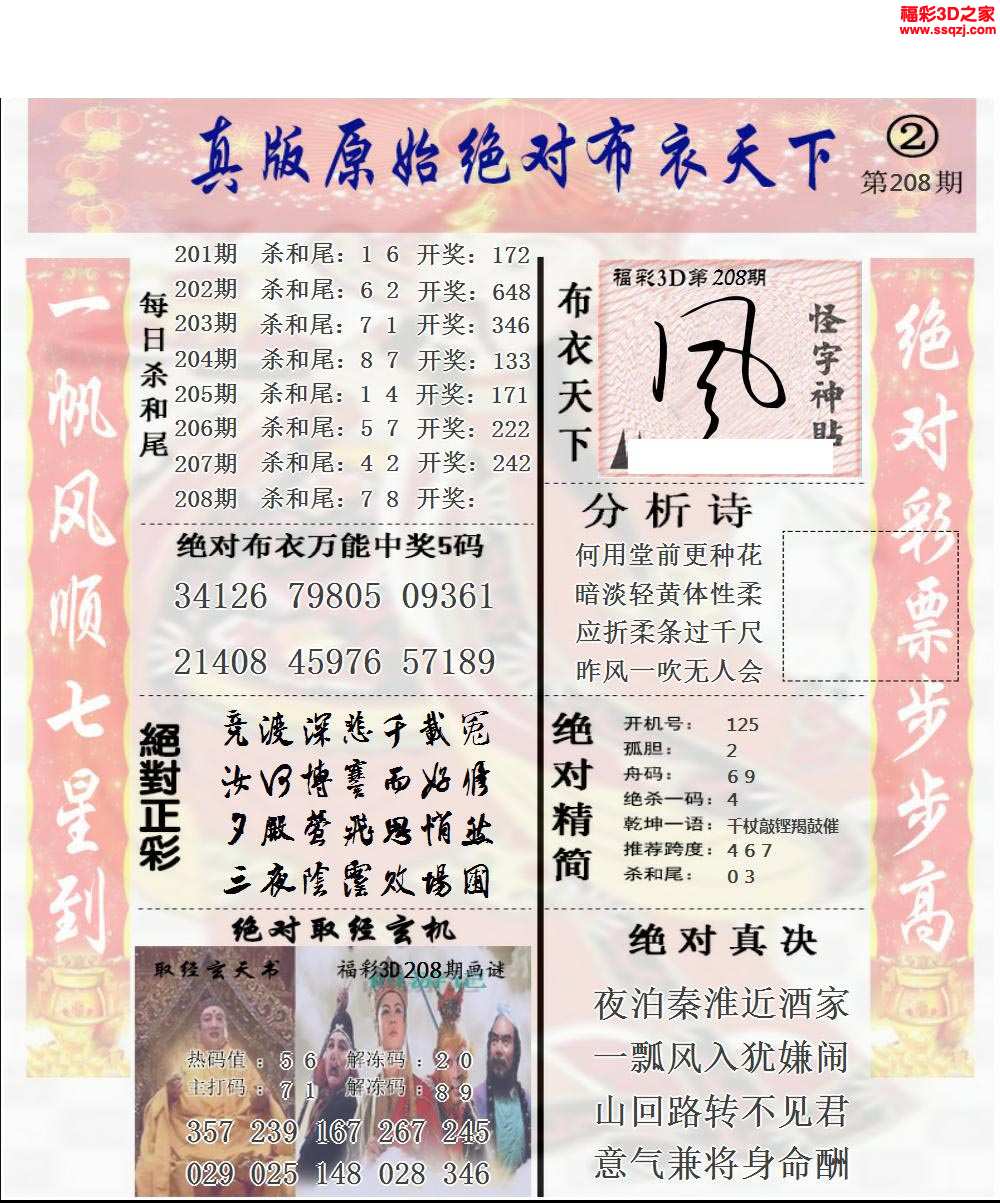 福彩3D之家
www.ssqzj.com
真版原始绝对布衣天下
②
第208期
一帆风顺七星到
每日杀和尾
201期 杀和尾：1 6 开奖：172
202期 杀和尾：6 2 开奖：648
203期 杀和尾：7 1 开奖：346
204期 杀和尾：8 7 开奖：133
205期 杀和尾：1 4 开奖：171
206期 杀和尾：5 7 开奖：222
207期 杀和尾：4 2 开奖：242
208期 杀和尾：7 8 开奖：
绝对布衣万能中奖5码
34126 79805 09361
21408 45976 57189
絕對正彩
竞渡深悲千載冤
汝何博謇而好修
夕殿萤飛思悄然
三夜陰霪敗場圃
绝对取经玄机
取经玄天书
福彩3D208期画谜
热码值：5 6 解冻码：2 0
主打码：7 1 解冻码：8 9
357 239 167 267 245
029 025 148 028 346
布衣天下
福彩3D第208期
风
怪字神贴
分析诗
何用堂前更种花
暗淡轻黄体性柔
应折柔条过千尺
昨风一吹无人会
绝对精简
开机号： 125
孤胆： 2
舟码： 6 9
绝杀一码：4
乾坤一语：千杖敲铿羯鼓催
推荐跨度：4 6 7
杀和尾： 0 3
绝对真决
夜泊秦淮近酒家
一瓢风入犹嫌闹
山回路转不见君
意气兼将身命酬
绝对彩票步步高